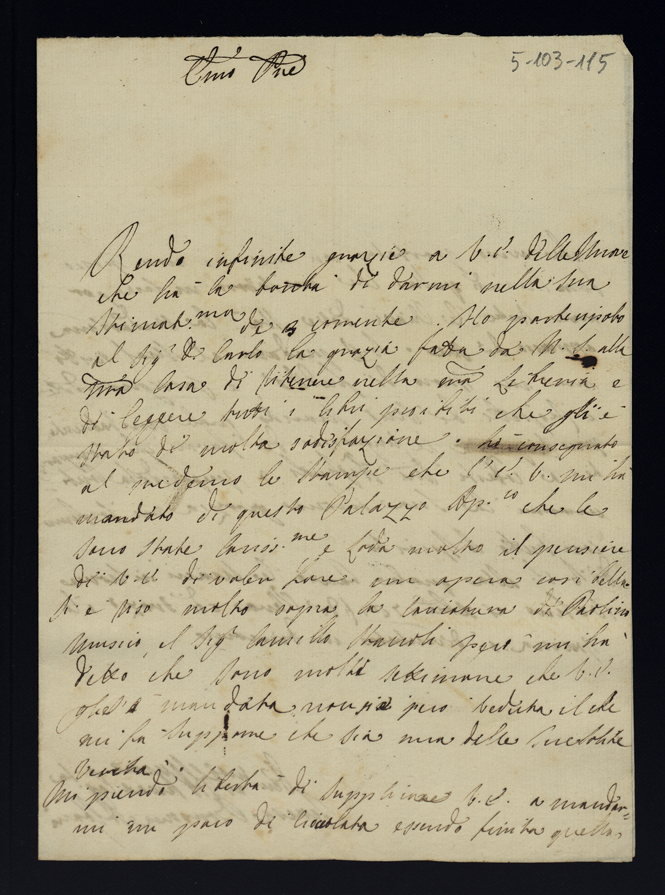 5-103-115
Emo Pne
Rendo infinite grazie a V.E. delle Nuove
che ha la bontà di darmi nella sua
Stimat.ma de 3 corrente. Ho partecipato
al Sigr D Carlo la grazia fatta da N.S. alla
sua Casa di ritenere nella sua Libreria e
di leggere tutti i libri proibiti che gli è
stato di molta sodisfazione. hò consegnato
al medemo le Stampe che l'E.V. mi ha
mandato di questo Palazzo Ap.co che le
sono state cariss.me e Loda molto il pensiere
di V.E. di voler fare un opera così bella
Si è riso molto sopra la caricatura di Paolino
musico, il Sigr Camillo però mi ha
detto che sono molte settimane che V.E.
mandata non sia però veduta il che
mi fa supporre che sia una delle sue solite
Mi prendo libertà di supplicare V.E. a mandar=
mi un poco di Ciccolata essendo finita quella,